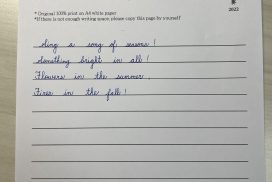 2022
* Original 100% print on A4 white paper
* If there is not enough writing space, please copy this page by yourself
Sing a song of seasons!
Something bright in all!
Flowers in the summer,
Fires in the fall!